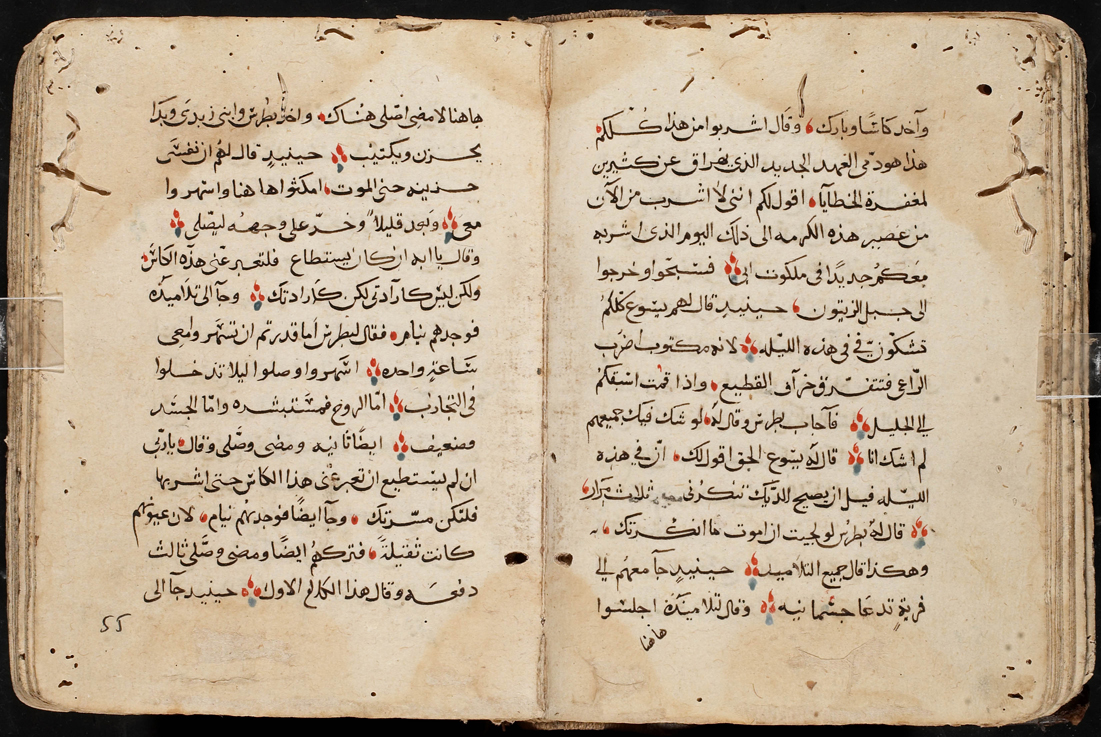 وآخد كاسًا وبارك وقال اشربوا من هذا كلكم
هذا هو دمي العهد الجديد الذي يهراق عن كثيرين
لمغفرة الخطايا اقول لكم انني لا اشرب من الآن
من عصير هذه الكرمه الى ذلك اليوم الذي اشربه
معكم جديدًا في ملكوت ابي فسبحوا وخرجوا
الى جبل الزيتون حينيدٍ قال لهم يسوع كلكم
تشكون فيّ في هذه الليله لانه مكتوب اضرب
الراعي فتتفرق خراف القطيع واذا قمت اسبقكم
الى الجليل فآجاب بطرس وقال له لو شك فيك جميعهم
لم اشك انا قال له يسوع الحق اقول لك ان في هذه
الليله قبل ان يصيح الديك تنكرني ثلاث مرار
قال له بطرس لو لجيت ان اموت ما انكرتك
وهكذا قال جميع التلاميد حينيدٍ جآ معهم الى
قريةٍ تدعا جسمانيه وقال لتلاميده اجلسوا
هاهنا
هاهنا لامضي اصلي هناك واخد بطرس وابني زبدي وبدا
يحزن ويكتيب حينيدٍ قال لهم ان نفسي
حزينه حتى الموت امكثوا هاهنا واسهروا
معي وبعد قليلاً وخرّ على وجهه ليصلي
وقال يا ابه ان كان يستطاع فلتعبر عني هذه الكاس
ولكن ليس كآرادتي لكن كآرادتك وجآ الى تلاميده
فوجدهم نيام فقال لبطرس أما قدرتم ان تسهروا معي
ساعةٍ واحده اسهروا وصلوا ليلا تدخلوا
في التجارب امّا الروح فمستبشره وامّا الجسد
فضعيف ايضًا ثانيه ومضى وصلى وقال يا ابي
ان لم يستطيع ان تعبر عني هذا الكاس حتى اشربها
فلتكن مسرتك وجآ ايضًا فوجدهم نيام لان عيونهم
كانت ثقيلةً فتركهم ايضًا ومضى وصلى ثالث
دفعه وقال هذا الكلام الاول حينيد جآ الى
55